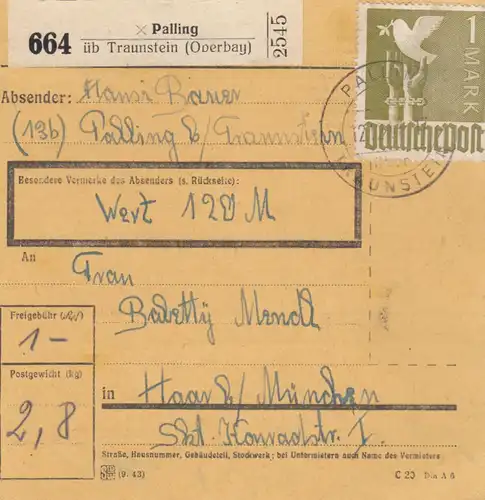 664
× Palling
üb Traunstein (Oberbay)
2545
1
MARK
Deutsche post
PALLING
12
TRAUNSTEIN
Absender: Hansi Bauer
(13b) Palling b/Traunstein
Besondere Vermerke des Absenders (s. Rückseite):
Wert 120 M
An
Frau
Babetty Mendl
Freigebühr (RM)
1-
Postgewicht (kg)
2,8
in Haar b/ München
Skt. Konradstr. I.
Straße, Hausnummer, Gebäudeteil, Stockwerk; bei Untermietern auch Name des Vermieters
(9. 43)
C 20 Din A 6